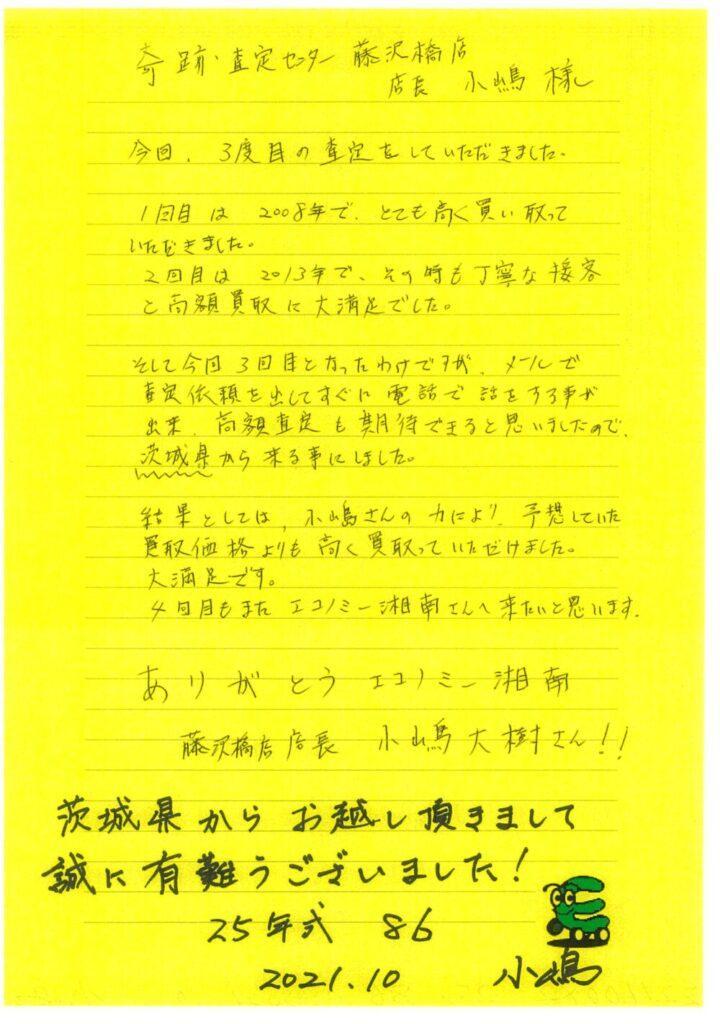 奇跡・査定センター 藤沢橋店
店長 小嶋 様
今回、3度目の査定をしていただきました。
1回目は 2008年で、とても高く買い取って
いただきました。
2回目は 2013年で、その時も丁寧な接客
と高額買取に大満足でした。
そして今回 3回目となったわけですが、メールで
査定依頼を出してすぐに電話で話をする事が
出来、高額査定も期待できると思いましたので、
茨城県から来る事にしました。
結果としては、小嶋さんの力により、予想していた
買取価格よりも高く買取っていただけました。
大満足です。
4回目もまた エコノミー湘南さんへ来たいと思います。
ありがとう エコノミー湘南
藤沢橋店 店長 小嶋大樹さん!!
茨城県から お越し頂きまして
誠に有難うございました!
25年式 86
2021.10 小嶋